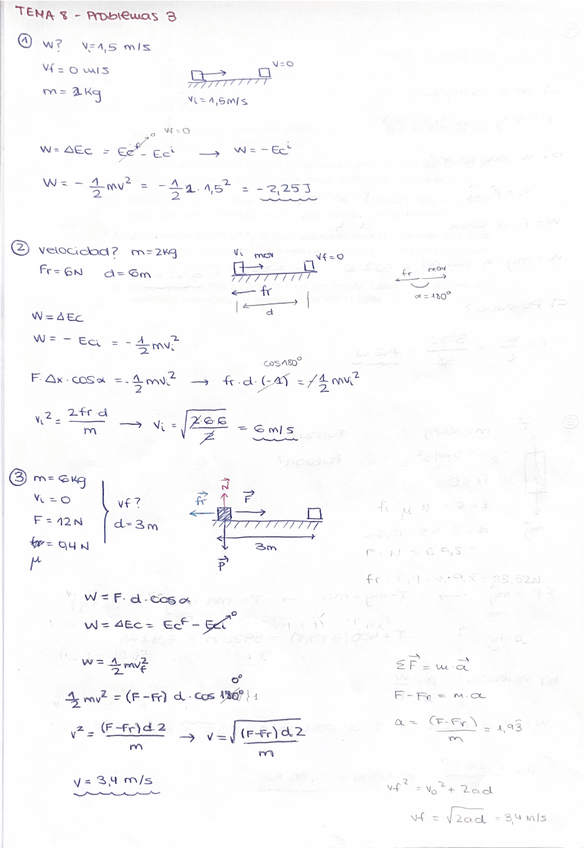 TEMA 8 - Problemas 3
① W? V=1,5 m/s
Vf = 0 m/s
m = 2kg
V=0
Vi=1,5m/s
W = ΔEc = Ecf - Eci → W = -Eci
0 Vf=0
W = - 1/2 mv² = - 1/2 2 · 1,5² = -2,25J
② velocidad? m=2kg
Fr=6N d=6m
Vi mov Vf=0
fr
d
fr mov
α=180°
W = ΔEc
W = - Eci = - 1/2 mvi²
cos180°
F · Δx · cosα = - 1/2 mvi² → fr · d · (-1) = - 1/2 mvi²
vi² = 2fr d / m → Vi = √(2 6 6 / 2) = 6 m/s
③ m=6kg
Vi = 0
F = 12N
= 0,4 N
μ
Vf?
d=3m
N
fr F
3m
P
W = F · d · cosα
W = ΔEc = Ecf - Eci 0
W = 1/2 mvf²
0°
1/2 mv² = (F-Fr) d · cos 180° 1
v² = (F-fr)d2 / m → V = √((F-Fr)d2 / m)
V = 3,4 m/s
ΣF = m·a
F - Fr = m·a
a = (F-Fr) / m = 1,93
vf² = v0² + 2ad
vf = √2ad = 3,4 m/s